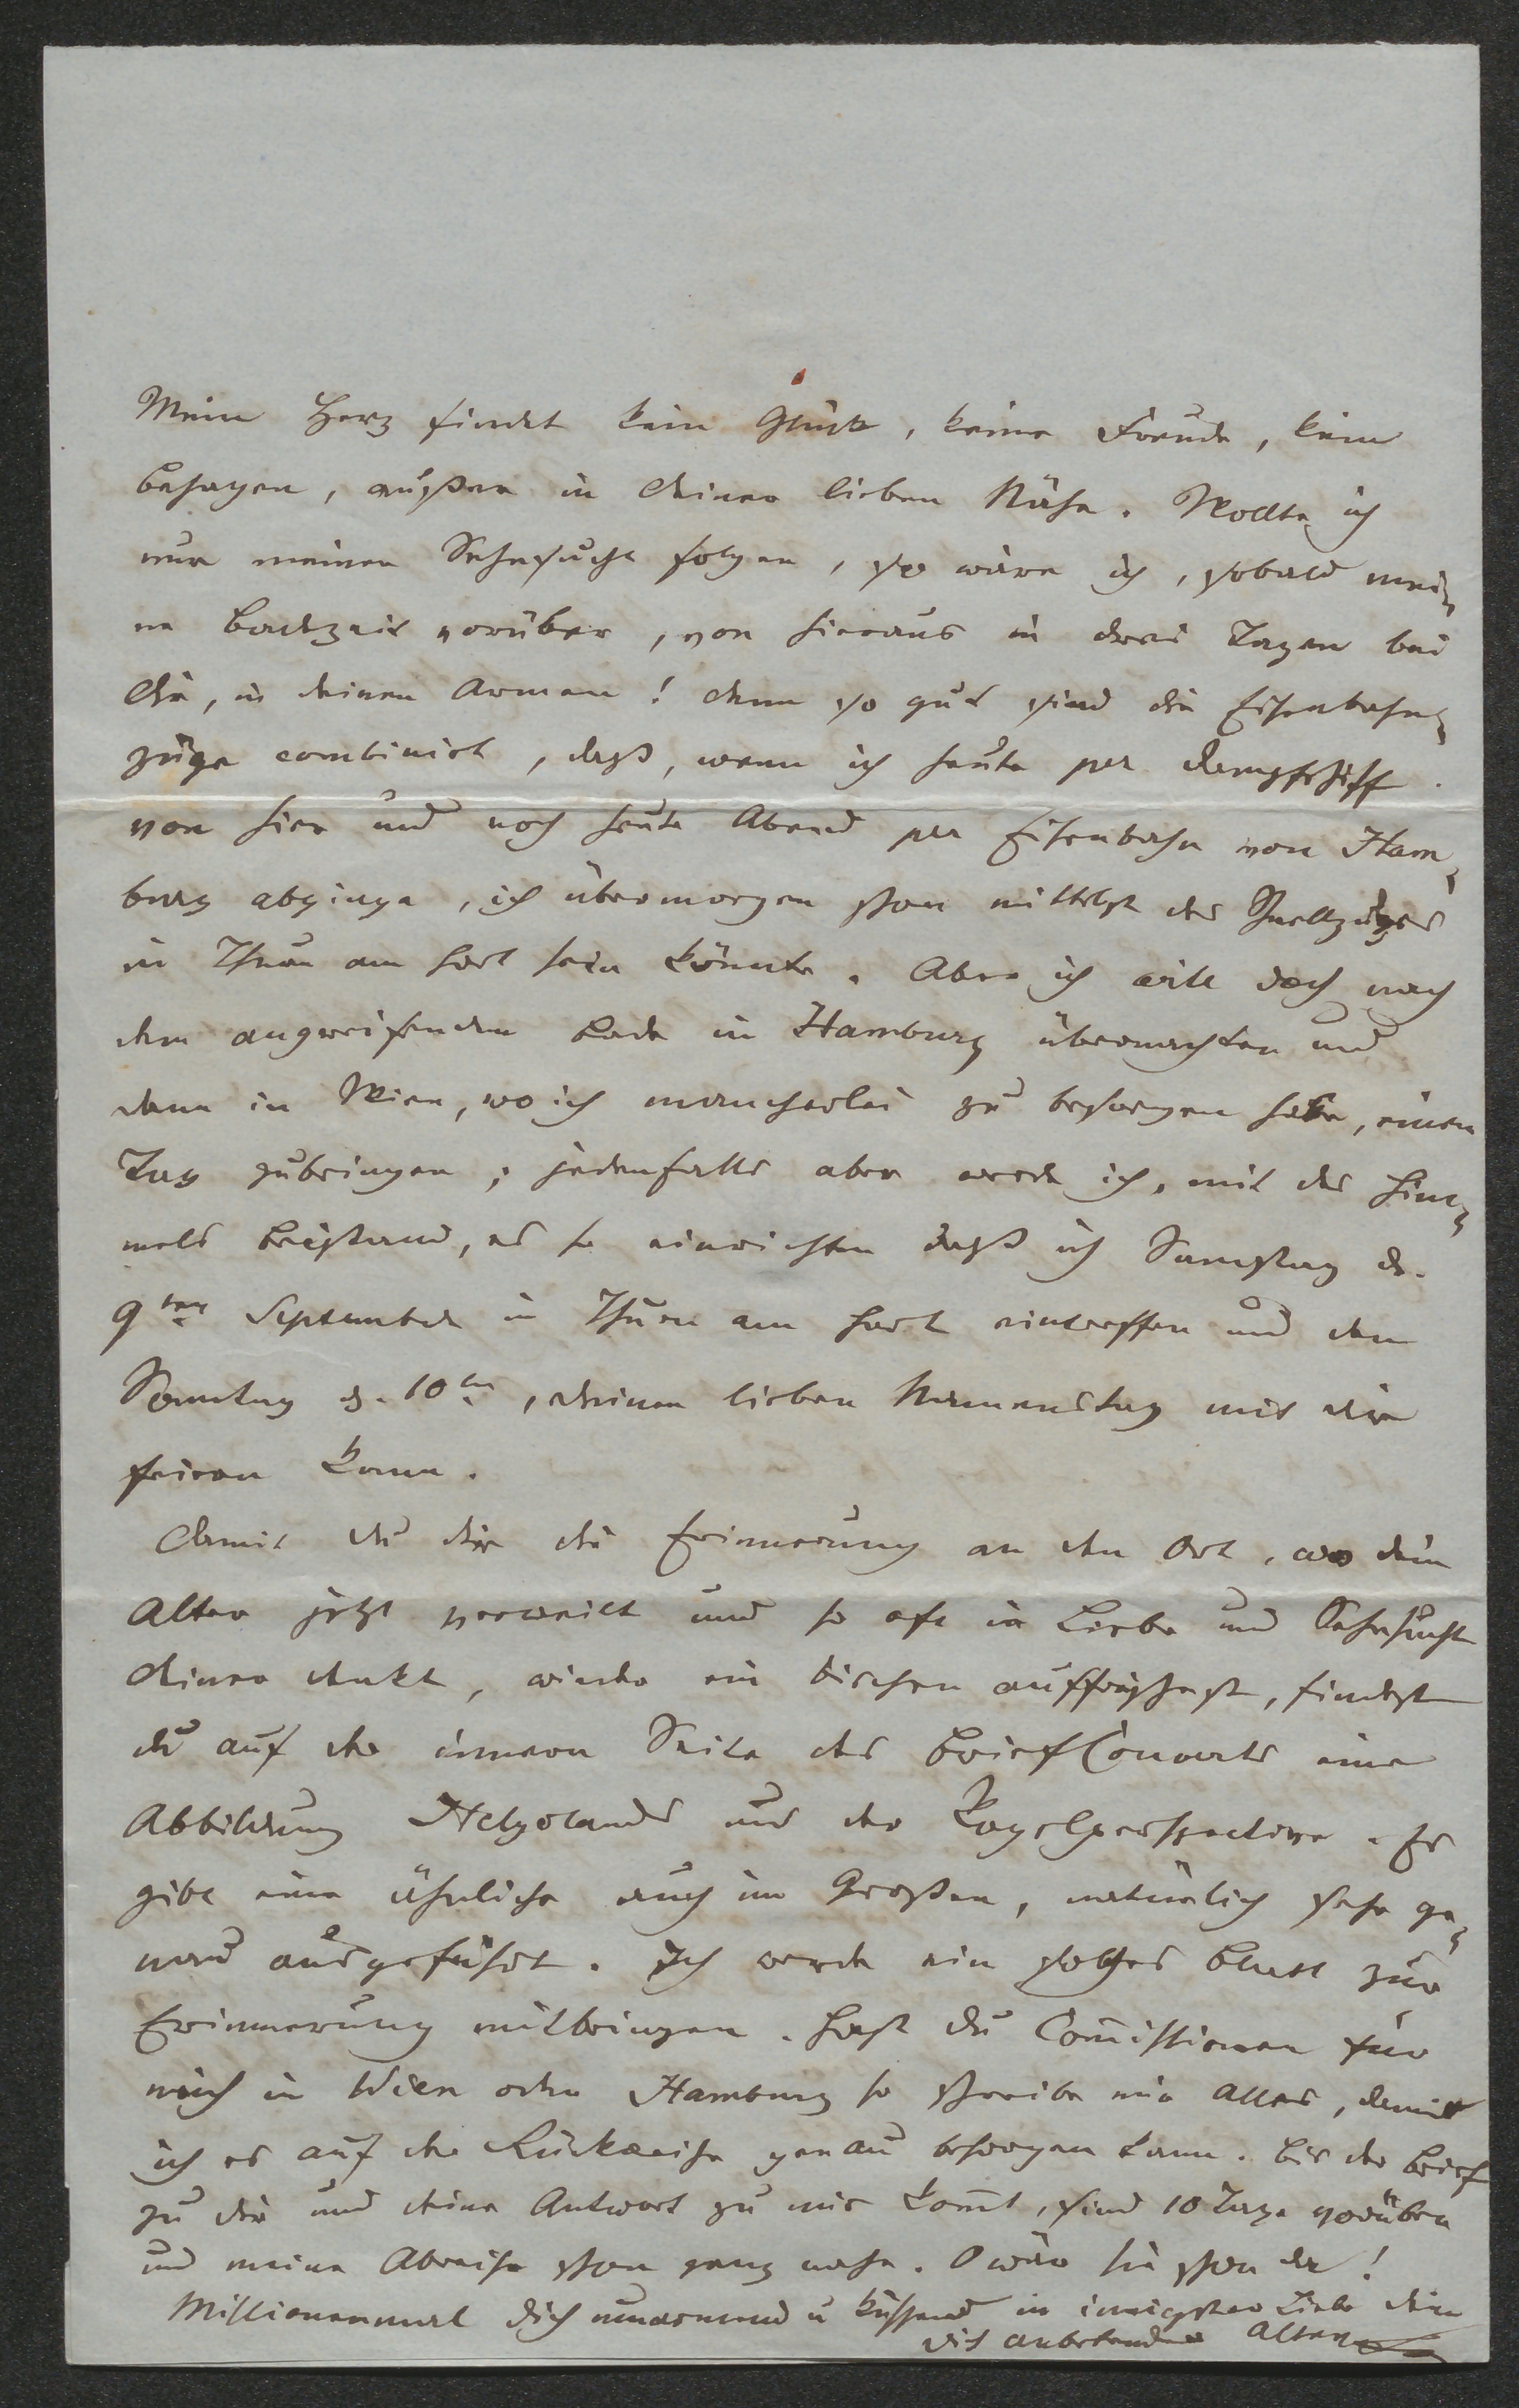 Mein Herz findet kein Glück, keine Freude, kein
Behagen, außer in Deiner lieben Nähe. Wollte ich
nur meiner Sehnsucht folgen, so wäre ich, sobald mei-
ne Badzeit vorüber, von hieraus in drei Tagen bei
Dir, in deinen Armen! denn so gut sind die Eisenbahn-
züge combinirt, daß, wenn ich heute per Dampfschiff
von hier und noch heute Abend per Eisenbahn von Ham-
burg abginge, ich übermorgen schon mittelst des Schnellzuges
in Thurn am Hart sein könnte. Aber ich will doch nach
dem angreifenden Bade in Hamburg übernachten und
dann in Wien, wo ich mancherlei zu besorgen habe, einen
Tag zubringen; jedenfalls aber werde ich, mit des Him-
mels Beistand, es so einrichten daß ich Samstag d.
9ten September in Thurn am Hart eintreffen und den
Sonntag d. 10ten, deinen lieben Namenstag mit dir
feiern kann.
Damit du dir die Erinnerung an den Ort, wo dein
Alter jetzt verweilt und so oft in Liebe und Sehnsucht
deiner denkt, wieder ein bischen auffrischest, findest
du auf der innern Seite des Brief Couverts eine
Abbildung Helgolands aus der Vogelperspective. Es
gibt eine ähnliche auch im Großen, natürlich sehr ge-
nau ausgeführt. Ich werde ein solches Blatt zur
Erinnerung mitbringen. Hast du Com̅issionen für
mich in Wien oder Hamburg so schreibe mir Alles, damit
ich es auf der Rückreise genau besorgen kann. Bis der Brief
zu dir und deine Antwort zu mir kom̅t, sind 10 Tage vorüber
und meine Abreise schon ganz nahe. O wäre sie schon da!
Millionenmal dich umarmend u küssend in innigster Liebe dein
dich anbetender Alter